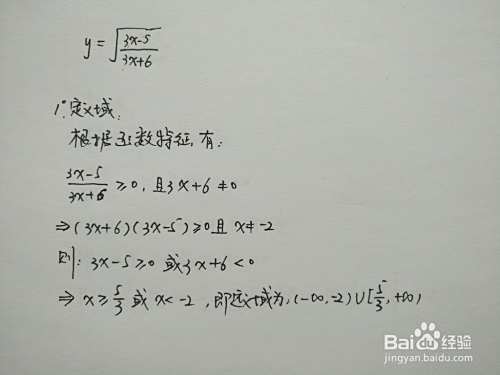 y = √((3x-5)/(3x+6))
1°定义域:
根据函数特征,有:
(3x-5)/(3x+6) ≥0, 且3x+6≠0
⇒(3x+6)(3x-5)≥0且 x≠-2
则: 3x-5≥0 或 3x+6<0
⇒ x≥5/3 或 x<-2, 即定义域为:(-∞,-2)∪[5/3,+∞)
Baidu经验
jingyan.baidu.com